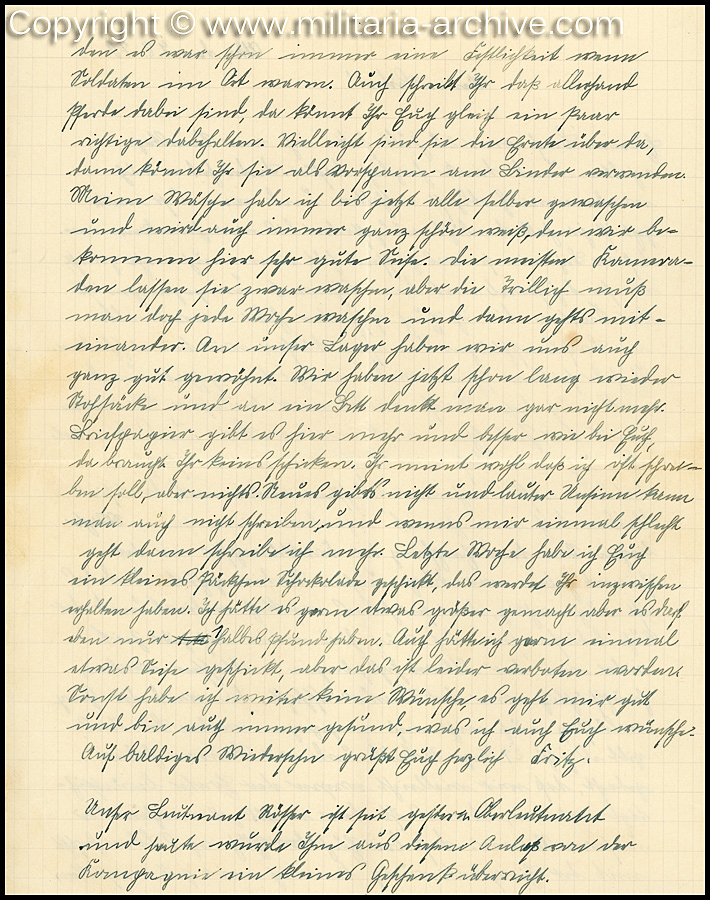 Copyright © www.militaria-archive.com
den es war schon immer eine Festlichkeit wenn
Soldaten im Ort waren. Auch schreibt Ihr daß allerhand
Pferde dabei sind, da könnt Ihr Euch gleich ein paar
richtige dabehalten. Vielleicht sind sie die Ernte über da,
dann könnt Ihr sie als Vorspann am Binder verwenden.
Meine Wäsche habe ich bis jetzt alle selber gewaschen
und wird auch immer ganz schön weiß, den wir be-
kommen hier sehr gute Seife. Die meisten Kamera-
den lassen sie zwar waschen, aber die Trillich muß
man doch jede Woche waschen und dann gehts mit-
einander. An unser Lager haben wir uns auch
ganz gut gewöhnt. Wir haben jetzt schon lang wieder
Strohsäcke und an ein Bett denkt man gar nicht mehr.
Briefpapier gibt es hier mehr und besser wie bei Euch,
da braucht Ihr keins schicken. Ihr meint wohl daß ich oft schrei-
ben soll, aber nichts Neues gibts nicht und lauter Unsinn kann
man auch nicht schreiben, und wenns mir einmal schlecht
geht dann schreibe ich mehr. Letzte Woche habe ich Euch
ein kleines Päckchen Schockolade geschickt, das werdet Ihr inzwischen
erhalten haben. Ich hätte es gern etwas größer gemacht aber es darf
eben nur halbes Pfund haben. Auch hätte ich gern einmal
etwas Seife geschickt, aber das ist leider verboten worden.
Sonst habe ich weiter keine Wünsche, es geht mir gut
und bin auch immer gesund, was ich auch Euch wünsche.
Auf baldiges Wiedersehn grüßt Euch herzlich Fritz.
Unser Leutnant Rösser ist seit gestern Oberleutnant
und heute wurde Ihm aus diesem Anlaß von der
Kompagnie ein kleines Geschenk überreicht.